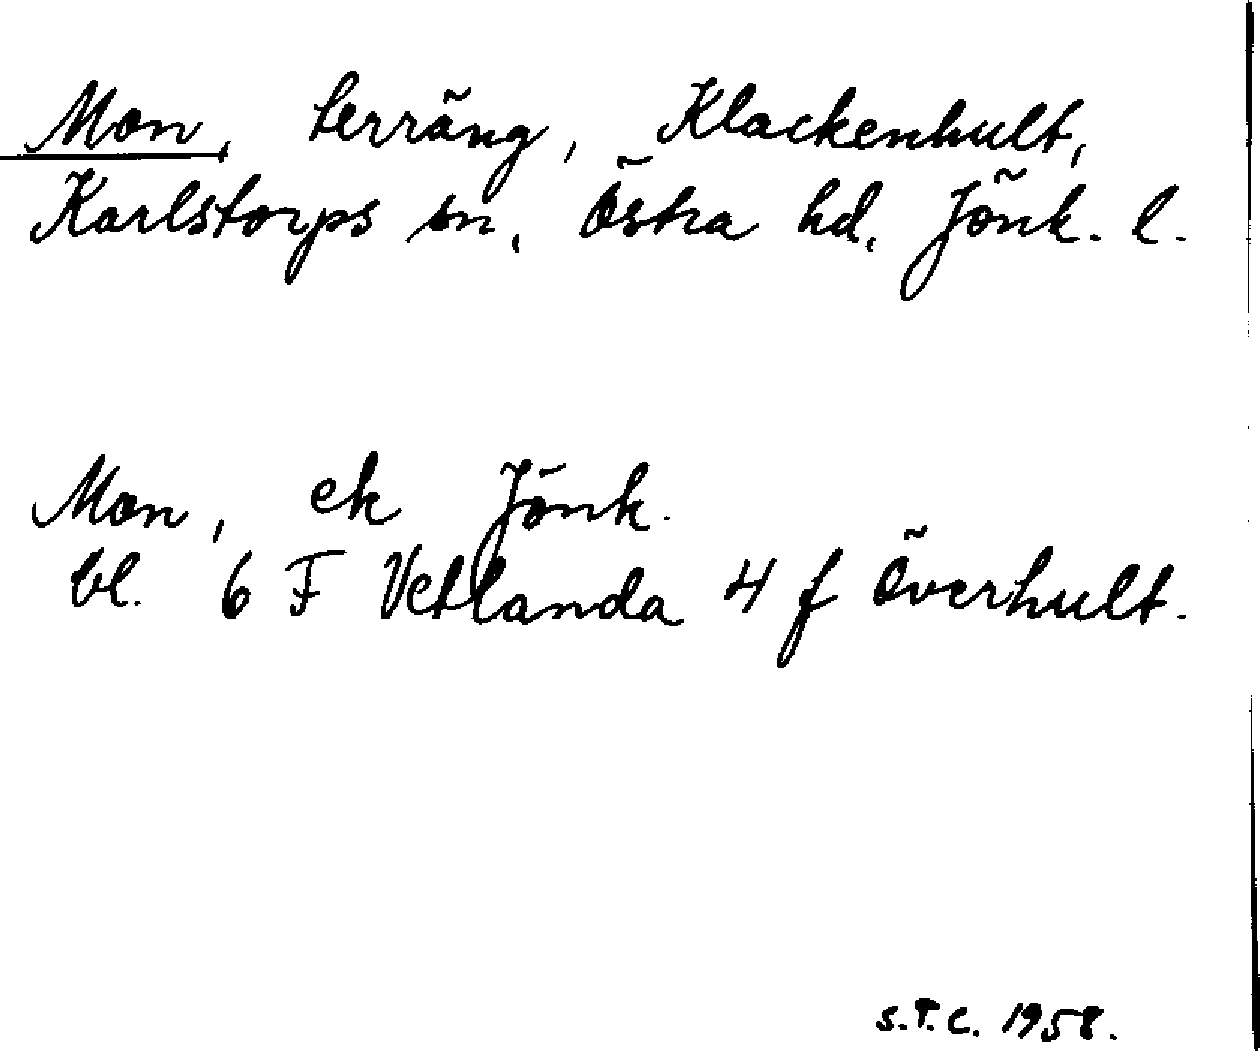 Mon, terräng, Klackenhult,
Karlstorps sn, Östra hd, Jönk. l.
Mon, ek Jönk.
bl. 6 F Vetlanda 4 f Överhult.
S.T.C. 1958.